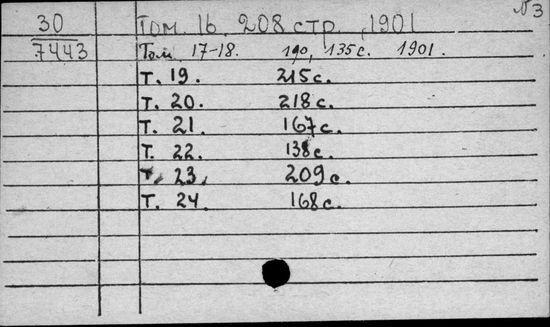 №3
30 Том. 16. 208 стр., 1901
7443 Том 17-18. 190, 135 с. 1901.
Т. 19. 215 с.
Т. 20. 218 с.
Т. 21. 167 с.
Т. 22. 138 с.
Т. 23. 209 с.
Т. 24. 168 с.